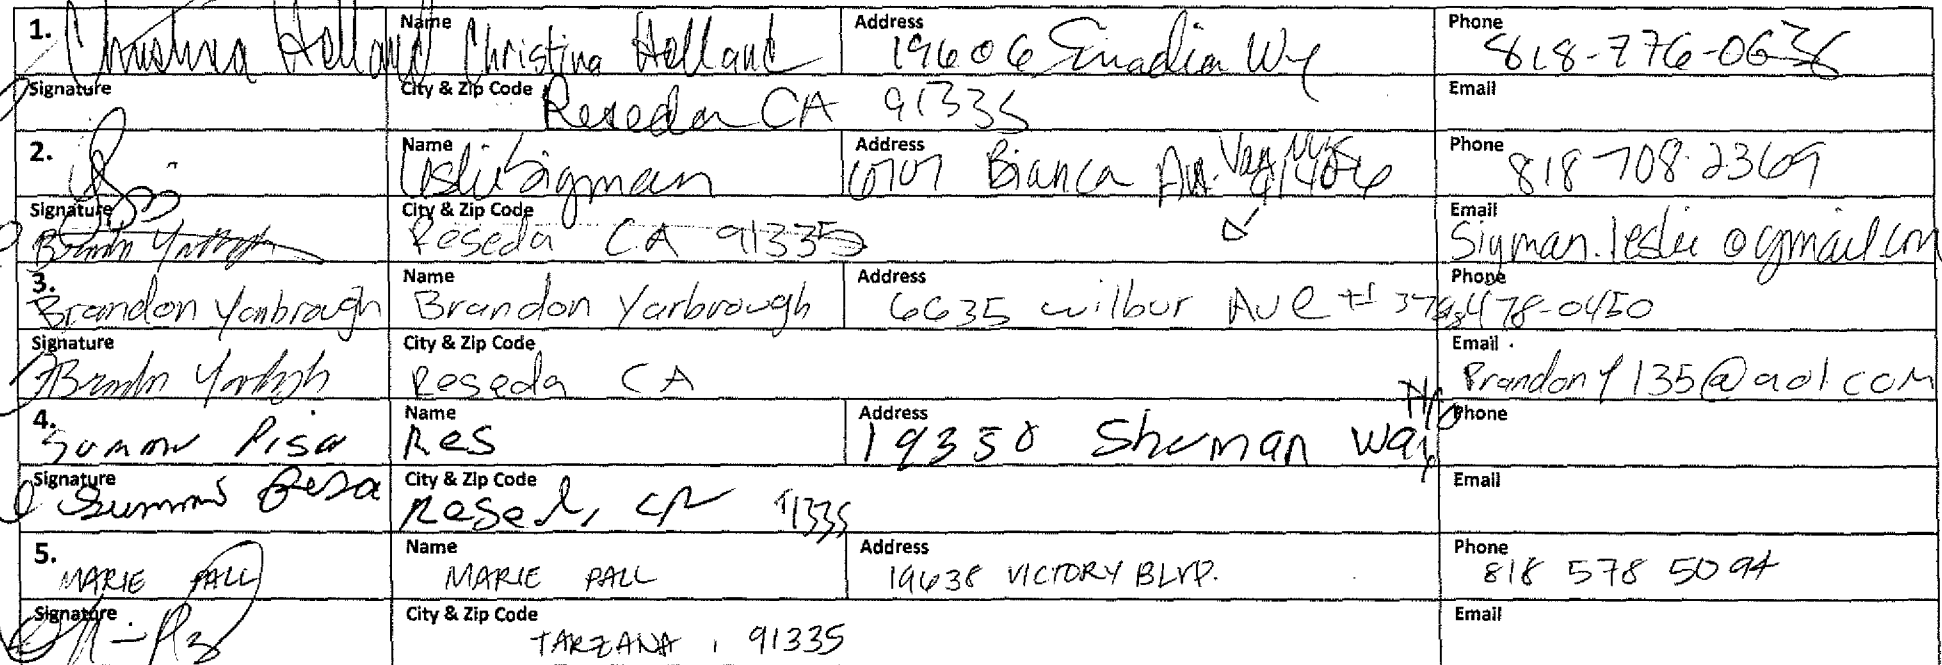 1. Christina Holland Name Christina Holland Address 19606 Enadia Wy Phone 818-776-0636
Signature City & Zip Code Reseda CA 91335 Email
2. Name Leslie Sigman Address 6707 Bianca Av. Van Nuys 91406 Phone 818 708-2369
Signature City & Zip Code Reseda CA 91335 Email Sigman.leslie@gmail.com
3. Brandon Yarbrough Name Brandon Yarbrough Address 6635 Wilbur Ave #37 Phone 478-0450
Signature City & Zip Code Reseda CA Email BrandonY135@aol.com
4. Pisa Name Res Address 19350 Sherman Way Phone
Signature City & Zip Code Reseda, CA 91335 Email
5. MARIE PALL Name MARIE PALL Address 19638 VICTORY BLVD. Phone 818 578 5094
Signature City & Zip Code TARZANA, 91335 Email